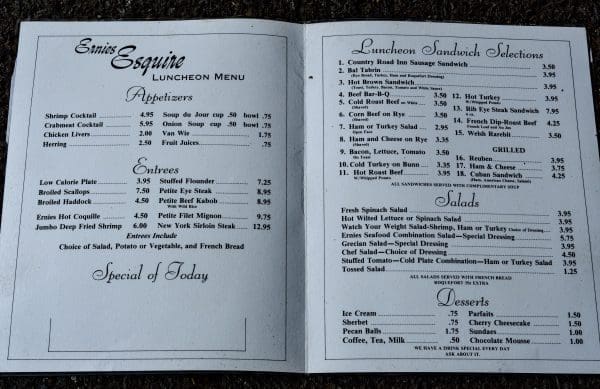 Ernies
Esquire
LUNCHEON MENU
Appetizers
Shrimp Cocktail 4.95 Soup du Jour cup .50 bowl .75
Crabmeat Cocktail 5.95 Onion Soup cup .50 bowl .75
Chicken Livers 2.00 Van Wie 1.75
Herring 2.50 Fruit Juices .75
Entrees
Low Calorie Plate 3.95 Stuffed Flounder 7.25
Broiled Scallops 7.50 Petite Eye Steak 8.95
Broiled Haddock 4.50 Petite Beef Kabob 8.95
With Wild Rice
Ernies Hot Coquille 4.50 Petite Filet Mignon 9.75
Jumbo Deep Fried Shrimp 6.00 New York Sirloin Steak 12.95
Entrees Include
Choice of Salad, Potato or Vegetable, and French Bread
Special of Today
Luncheon Sandwich Selections
1. Country Road Inn Sausage Sandwich 3.50
2. Bal Tabrin 3.95
(Rye Bread, Turkey, Ham and Roquefort Dressing)
3. Hot Brown Sandwich 3.95
(Toast, Turkey, Bacon, Tomato and White Sauce)
4. Beef Bar-B-Q 3.50
5. Cold Roast Beef on White 3.50
(Shaved)
6. Corn Beef on Rye 3.50
(Shaved)
7. Ham or Turkey Salad 2.95
Open Face
8. Ham and Cheese on Rye 3.35
(Shaved)
9. Bacon, Lettuce, Tomato 3.50
On Toast
10. Cold Turkey on Bunn 3.35
11. Hot Roast Beef 3.95
W/Whipped Potato
12. Hot Turkey 3.95
W/Whipped Potato
13. Rib Eye Steak Sandwich 7.95
14. French Dip-Roast Beef 4.25
French Loaf and Au Jus
15. Welsh Rarebit 3.50
GRILLED
16. Reuben 3.95
17. Ham & Cheese 3.75
18. Cuban Sandwich 4.25
ALL SANDWICHES SERVED WITH COMPLIMENTARY SOUP
Salads
Fresh Spinach Salad 3.95
Hot Wilted Lettuce or Spinach Salad 3.95
Watch Your Weight Salad-Shrimp, Ham or Turkey Choice of Dressing 3.95
Ernies Seafood Combination Salad—Special Dressing 5.75
Grecian Salad—Special Dressing 3.95
Chef Salad—Choice of Dressing 4.50
Stuffed Tomato—Cold Plate Combination—Ham or Turkey Salad 3.95
Tossed Salad 1.25
ALL SALADS SERVED WITH FRENCH BREAD
ROQUEFORT 35c EXTRA
Desserts
Ice Cream .75 Parfaits 1.50
Sherbet .75 Cherry Cheesecake 1.50
Pecan Balls 1.75 Sundaes 1.00
Coffee, Tea, Milk .50 Chocolate Mousse 1.00
WE HAVE A DRINK SPECIAL EVERY DAY
ASK ABOUT IT.